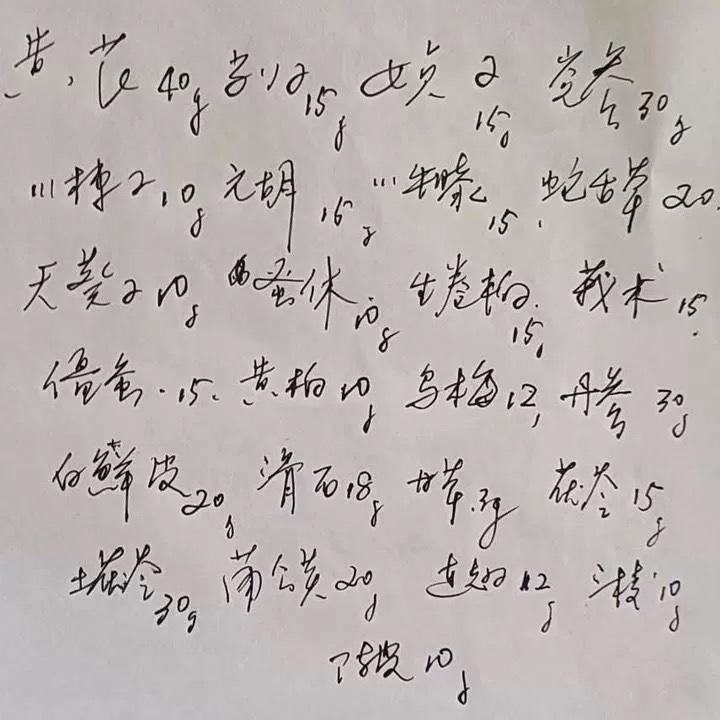 黄芪40g 15g 女贞子15g 党参30g
川楝子10g 元胡15g 川牛膝15. 蛇舌草20.
天葵子10g 蚤休10g 生卷柏15, 莪术15.
僵蚕.15. 黄柏10g 乌梅12, 丹参30g
白鲜皮20g 滑石18g 甘草.3g 茯苓15g
土茯苓30g 蒲公英20g 连翘12g 三棱10g
陈皮10g